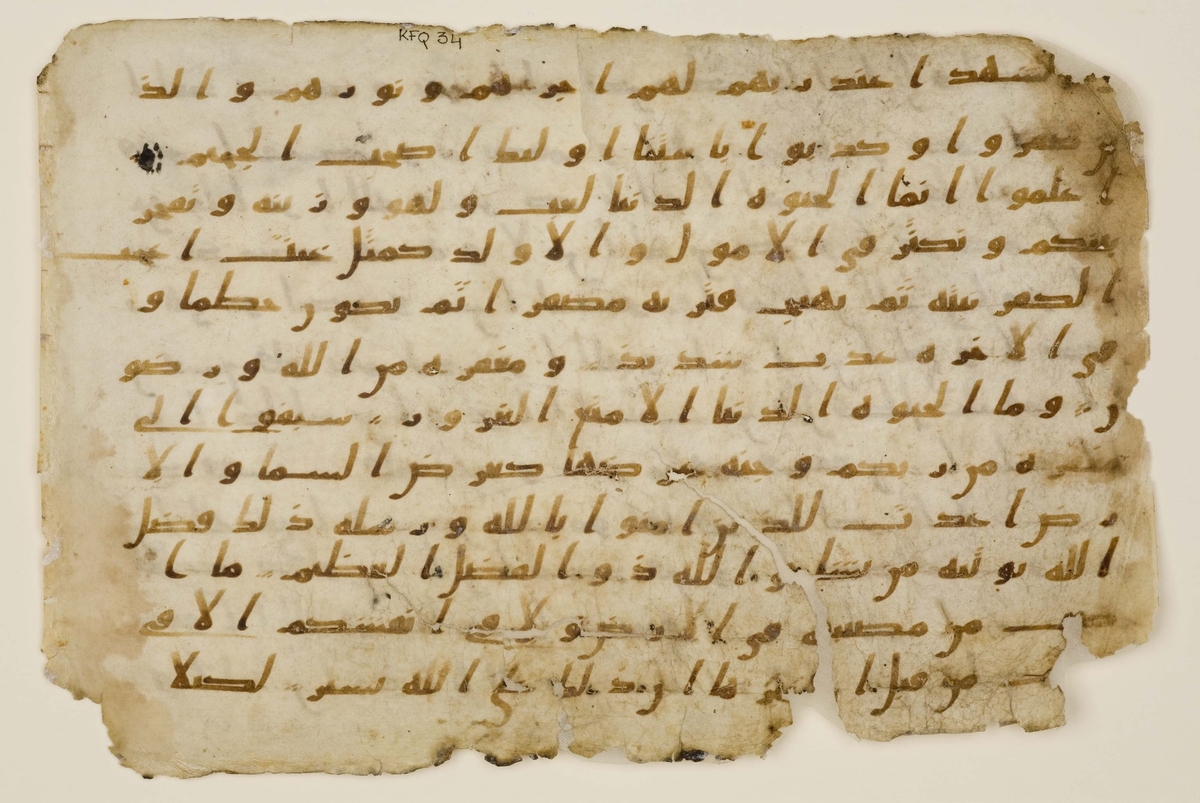 KFQ 34
والشهدا عند ربهم لهم اجرهم و نورهم والذ
ين كفروا وكذبوا بايتنا اولئك اصحب الجحيم
اعلموا انما الحيوه الدنيا لعب ولهو وزينه وتفخر
بينكم وتكثر في الامول والاولد كمثل غيث اعجب
الكفر نبته ثم يهيج فتريه مصفرا ثم يكون حطما و
في الاخره عذب شديد ومغفره من الله ورضو
ن وما الحيوه الدنيا الا متع الغرور سبقوا الى
مغفره من ربكم وجنه عرضها كعرض السما والا
رض اعدت للذين امنوا بالله ورسله ذلك فضل
الله يوتيه من يشا والله ذوا الفضل العظيم ما ا
صب من مصيبه في الارض ولا في انفسكم الا في
من قبل ان ذلك على الله يسير لكيلا